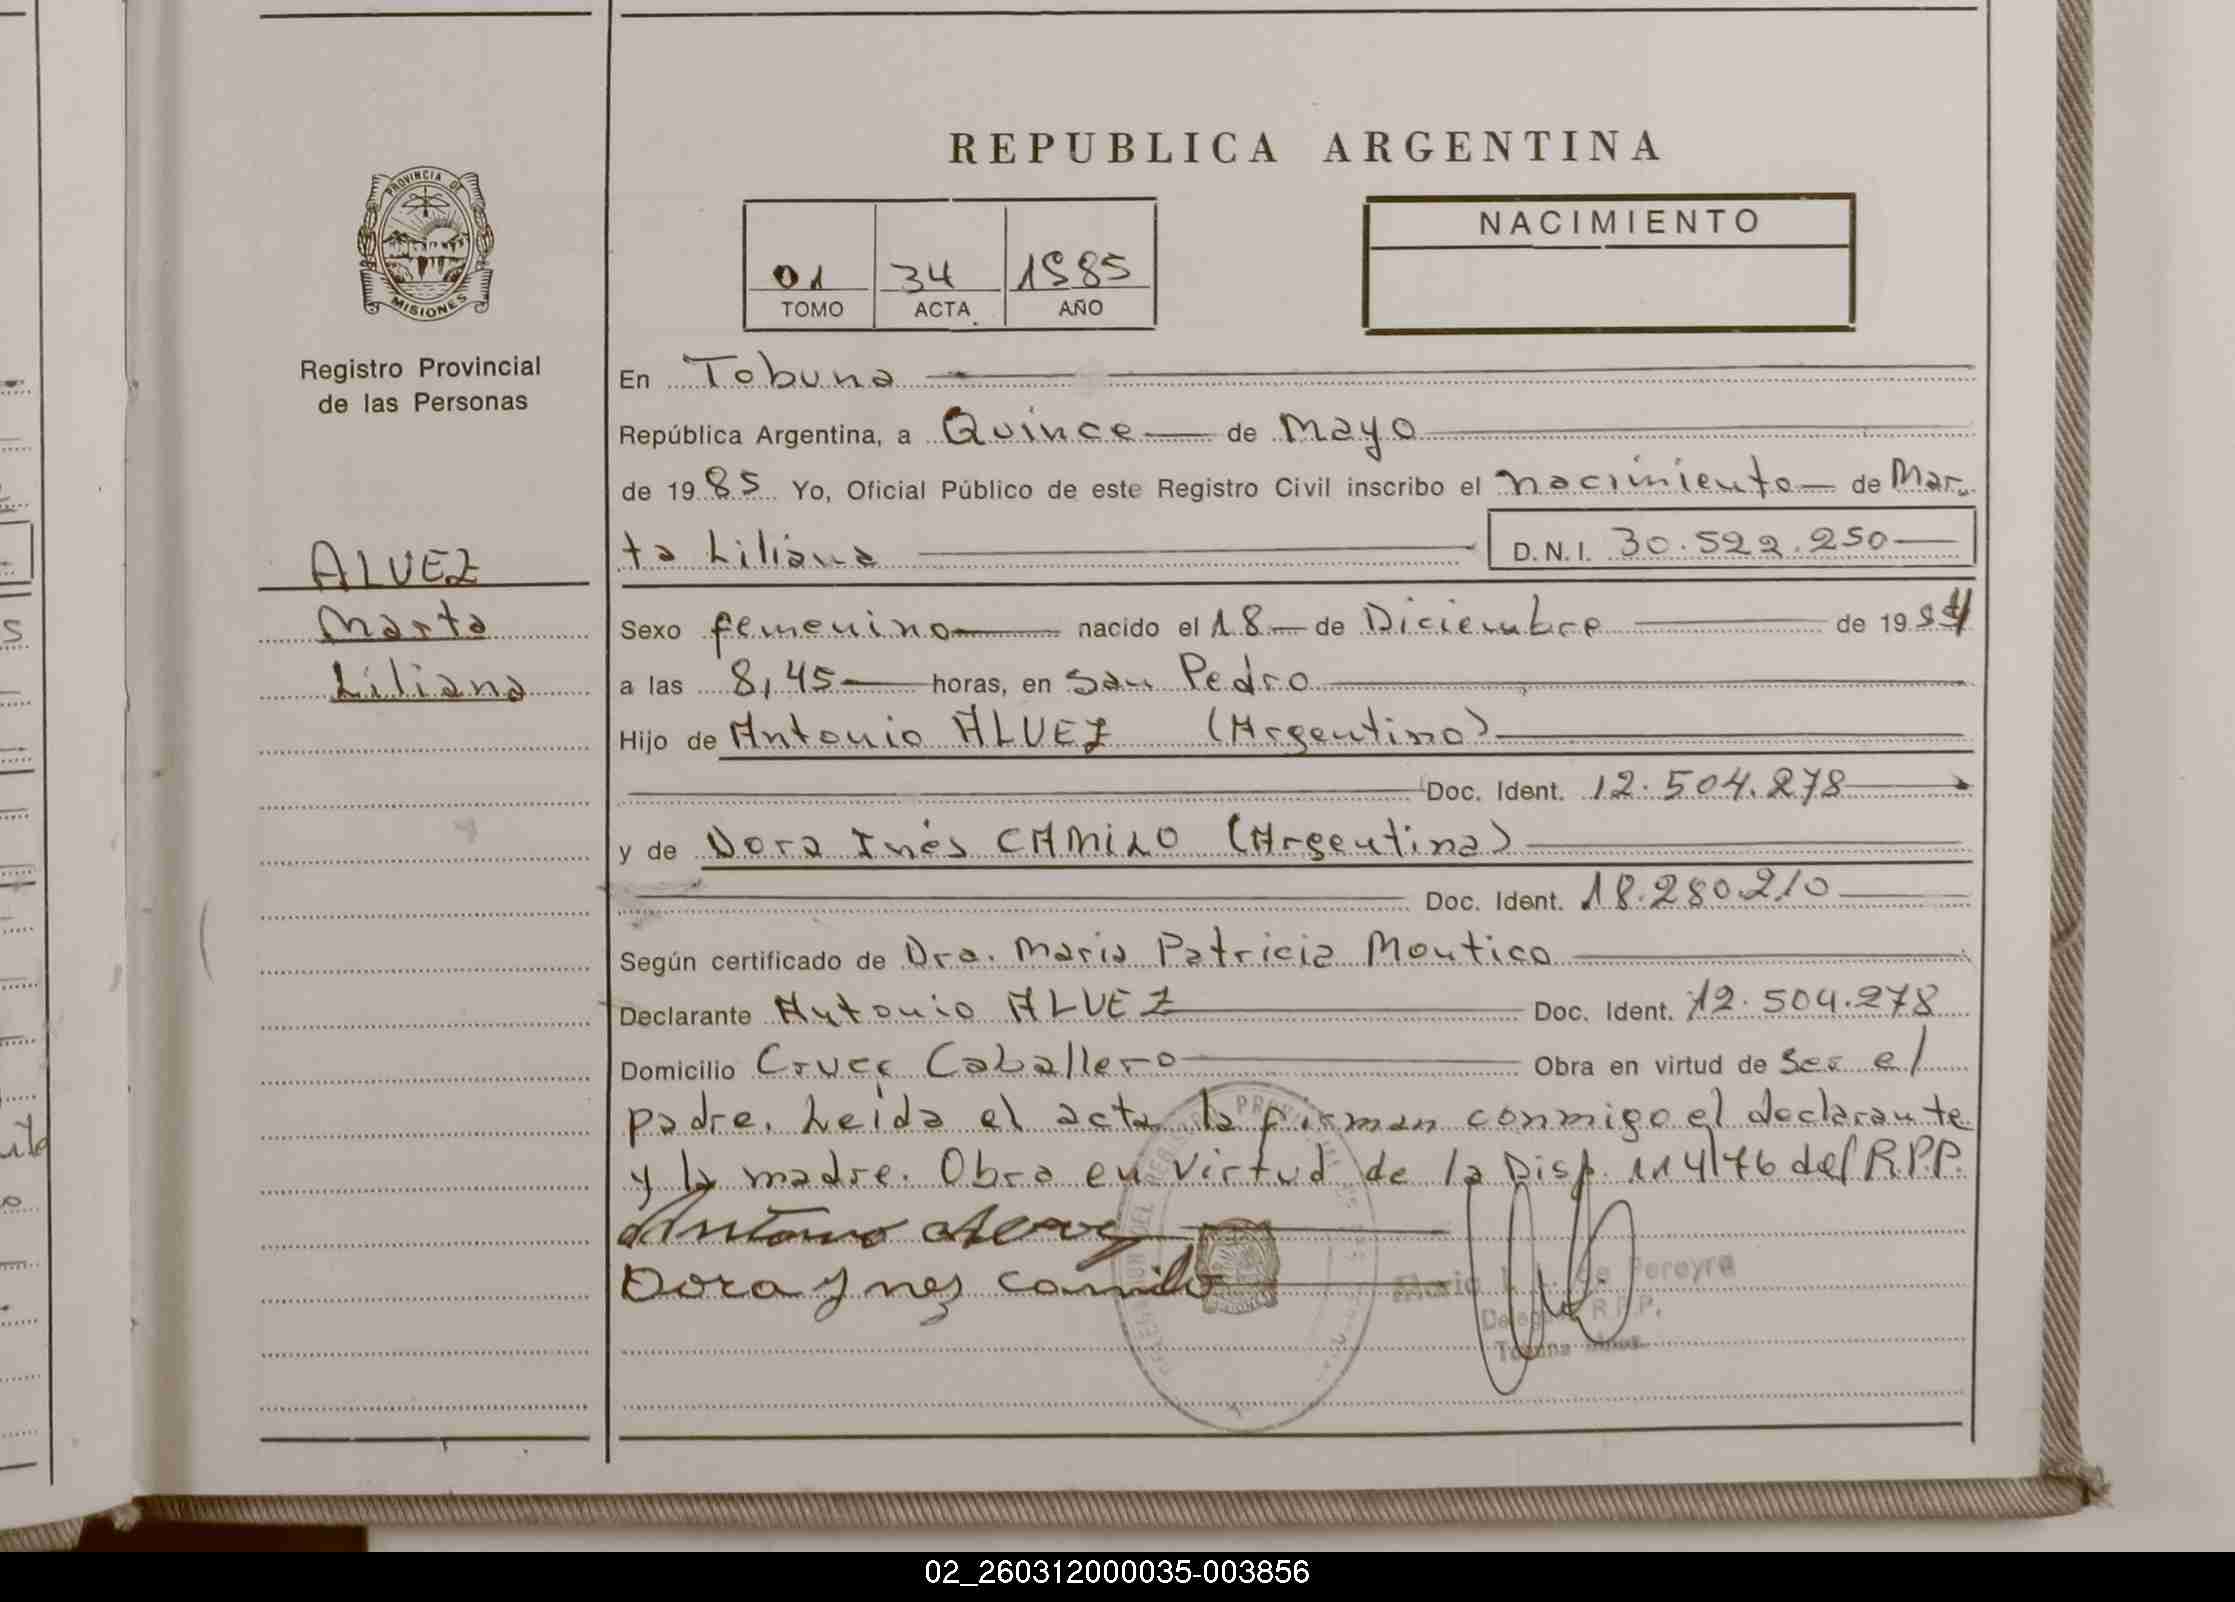 REPUBLICA ARGENTINA
PROVINCIA DE
MISIONES
Registro Provincial
de las Personas
01 34 1985
TOMO ACTA AÑO
NACIMIENTO
ALVEZ
Marta
Liliana
En Tobuna
República Argentina, a Quince de Mayo
de 1985 Yo, Oficial Público de este Registro Civil inscribo el nacimiento de Mar
ta Liliana D.N.I. 30.522.250
Sexo femenino nacido el 18 de Diciembre de 1984
a las 8,45 horas, en San Pedro
Hijo de Antonio ALVEZ (Argentino)
Doc. Ident. 12.504.278
y de Dora Inés CAMILO (Argentina)
Doc. Ident. 18.280.210
Según certificado de Dra. Maria Patricia Montico
Declarante Antonio ALVEZ Doc. Ident. 12.504.278
Domicilio Cruce Caballero Obra en virtud de ser el
padre. Leida el acta la firman conmigo el declarante
y la madre. Obra en virtud de la Disp. 114/76 del R.P.P.
Antonio
Dora Ynes camilo
Maria de Pereyra
R.P.P.
Tobuna
02_260312000035-003856